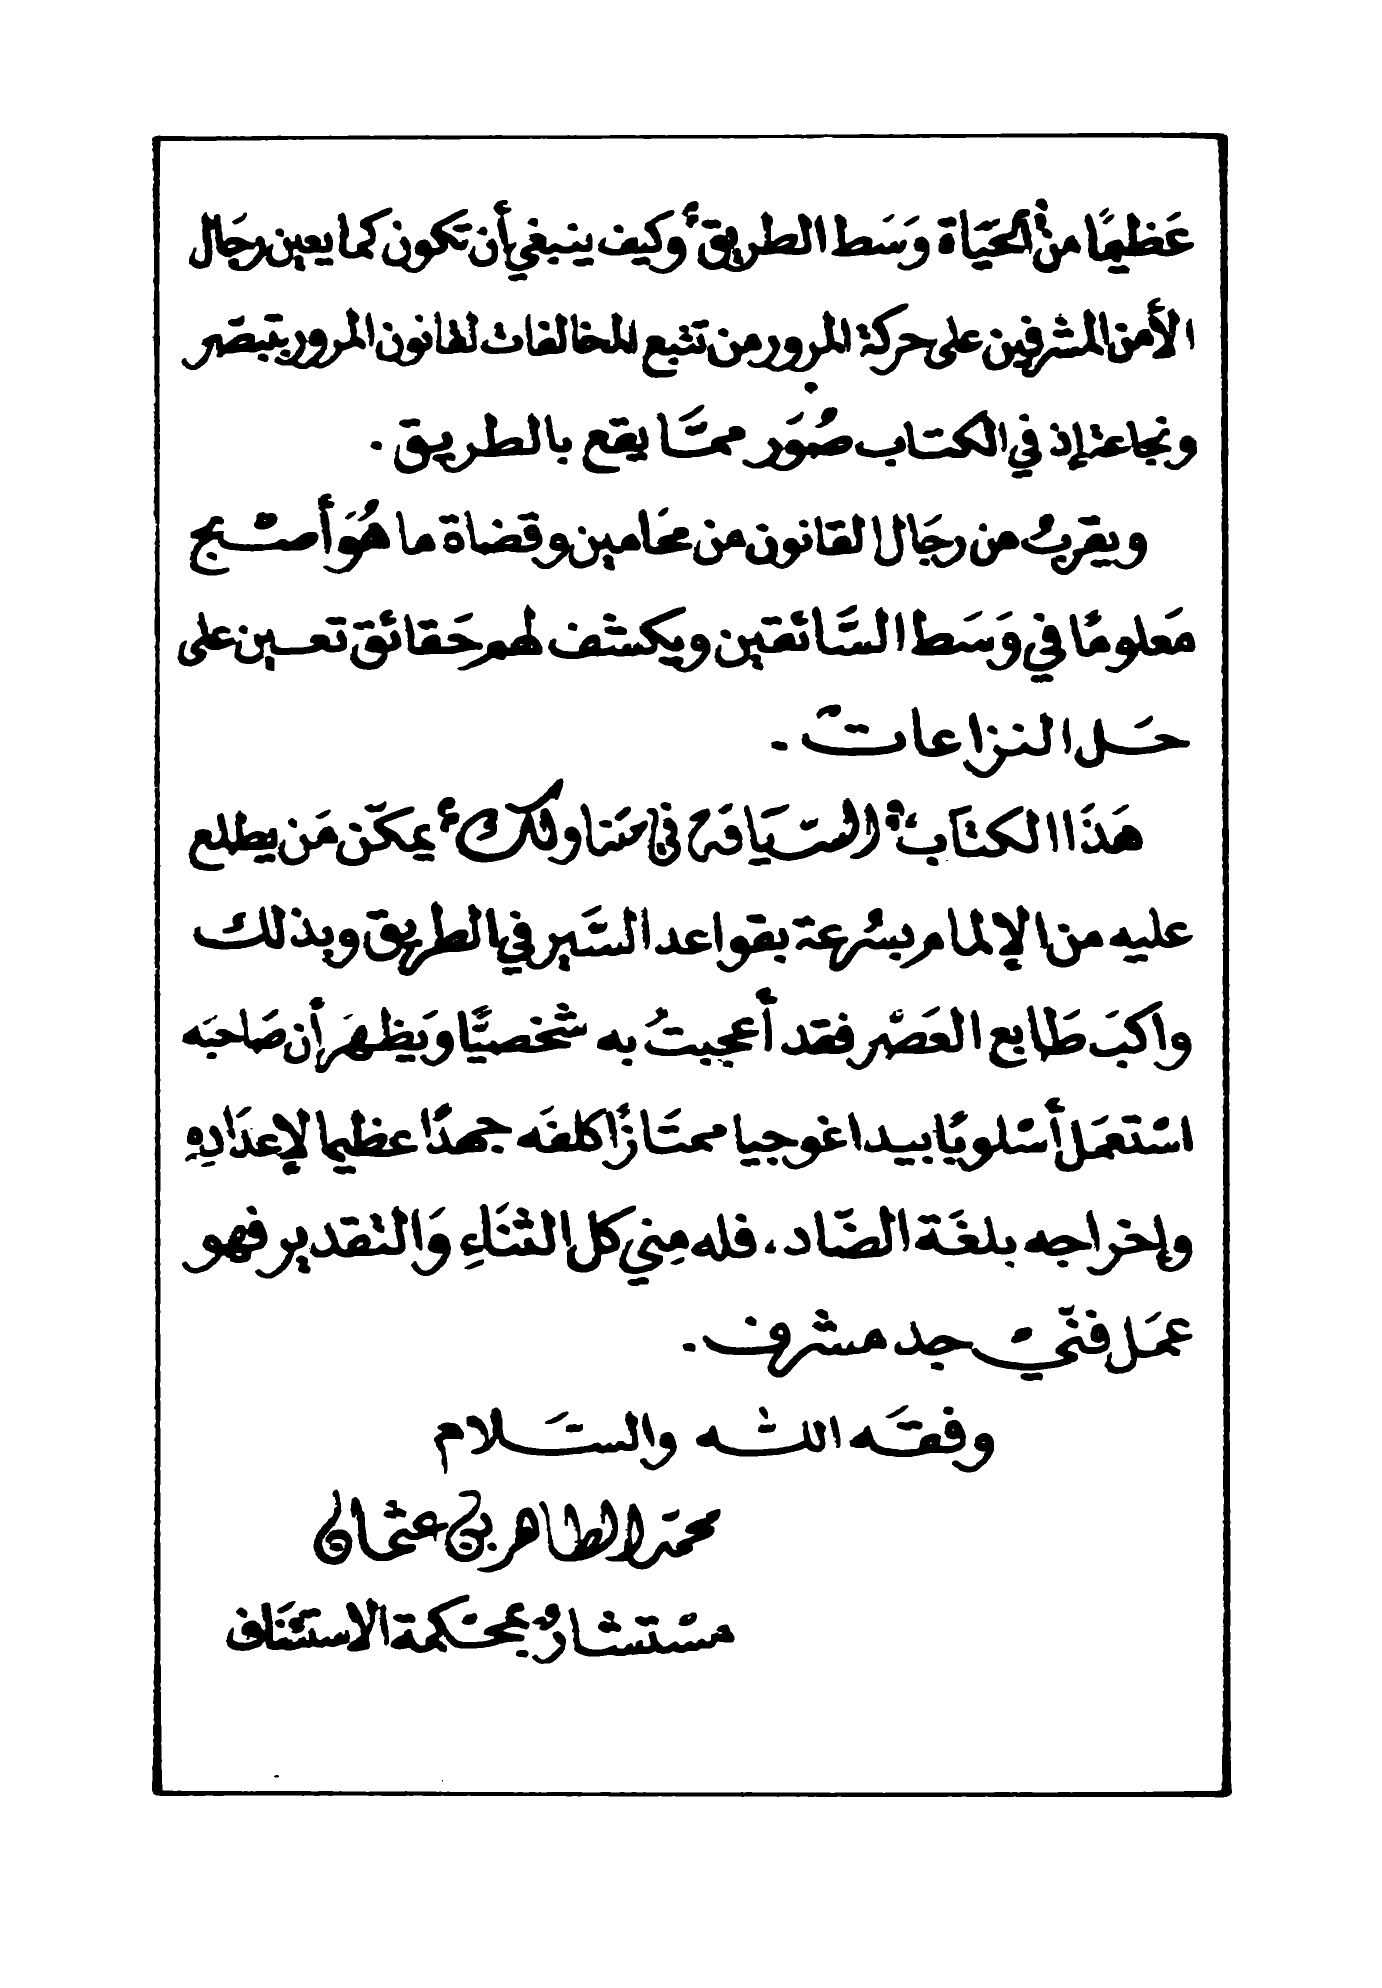 عَظيمًا من "الحَيَاة وَسَط الطريق" وكيف ينبغي أن تكون كما يعين رجَال
الأمن المشرفين على حركة المرور من تتبع المخالفات لقانون المرور بتبصّر
ونجاعة إذ في الكتاب صُوَر ممَّا يقع بالطريق.
ويقربُ من رجَال القانون من محَامين وقضاة ما هُوَ أصْبح
مَعلومًا في وَسَط السَّائقين ويكشف لهم حَقائق تعين على
حَل النزاعات.
هَذَا الكتَاب "السّيَاقة في متنَاولك" يمكّن مَن يطلع
عليه من الإلمام بسُرعة بقواعد السَّير في الطريق وبذلك
واكبَ طَابع العَصْر فقد أعجبتُ به شخصيًّا وَيظهَر أن صَاحبَه
اسْتعمَل أسْلوبًا بيداغوجيا ممتَازًا كلفَه جهدًا عظيما لإعدَادِهِ
وإخراجه بلغَة الضَّاد، فله مِنِي كل الثنَاءِ وَالتقدير فهو
عمَل فنّيْ جد مشرف.
وفقَه اللّه والسَّلام
محمد الطاهر بن عثمان
مسْتشارٌ بمحْكمة الاستئنَاف